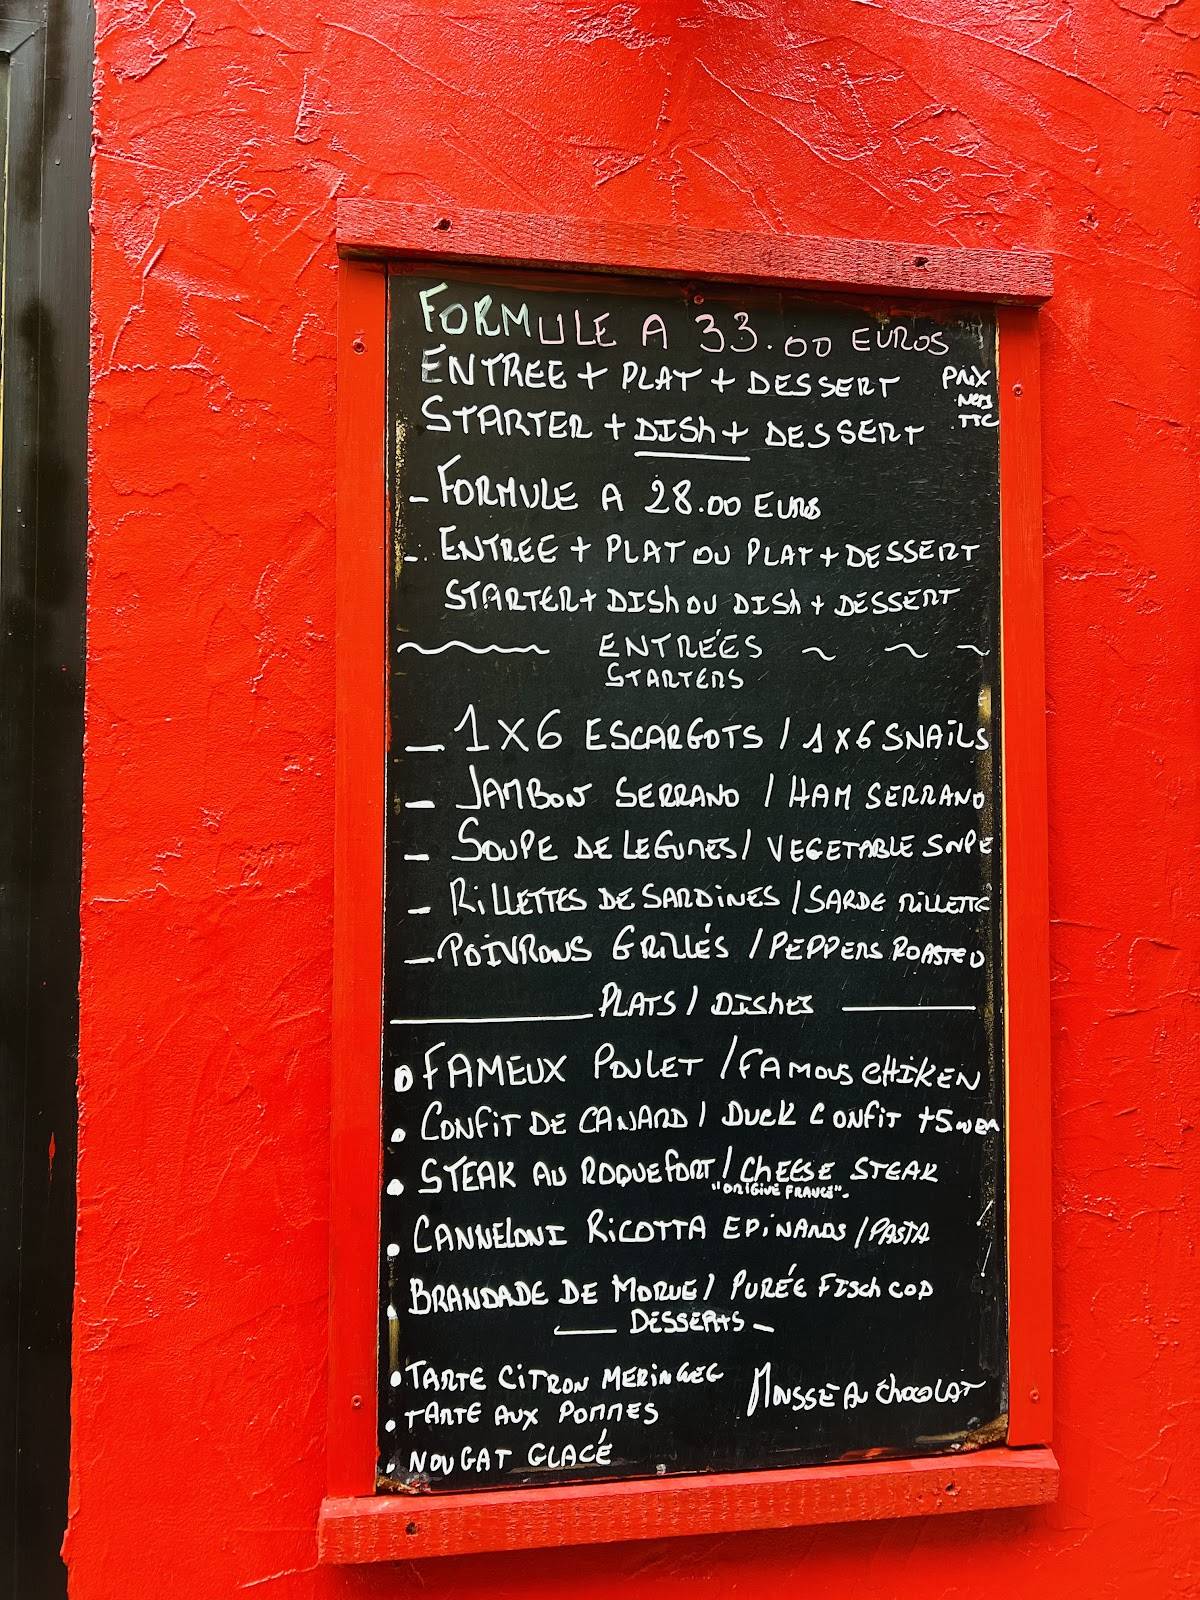 FORMULE A 33.00 EUROS
ENTREE + PLAT + DESSERT
PRIX
NETS
TTC
STARTER + DISH + DESSERT
- FORMULE A 28.00 EUROS
- ENTREE + PLAT OU PLAT + DESSERT
STARTER + DISH OU DISH + DESSERT
ENTRÉES
STARTERS
- 1 X 6 ESCARGOTS / 1 X 6 SNAILS
- JAMBON SERRANO / HAM SERRANO
- SOUPE DE LEGUMES / VEGETABLE SOUPE
- RILLETTES DE SARDINES / SARDE RILLETTE
- POIVRONS GRILLÉS / PEPPERS ROASTED
PLATS / DISHES
• FAMEUX POULET / FAMOUS CHIKEN
• CONFIT DE CANARD / DUCK CONFIT
• STEAK AU ROQUEFORT / CHEESE STEAK
"ORIGINE FRANCE".
• CANNELONI RICOTTA EPINARDS / PASTA
• BRANDADE DE MORUE / PURÉE FISCH COD
DESSERTS
• TARTE CITRON MERINGEE
MOUSSE AU CHOCOLAT
• TARTE AUX POMMES
• NOUGAT GLACÉ